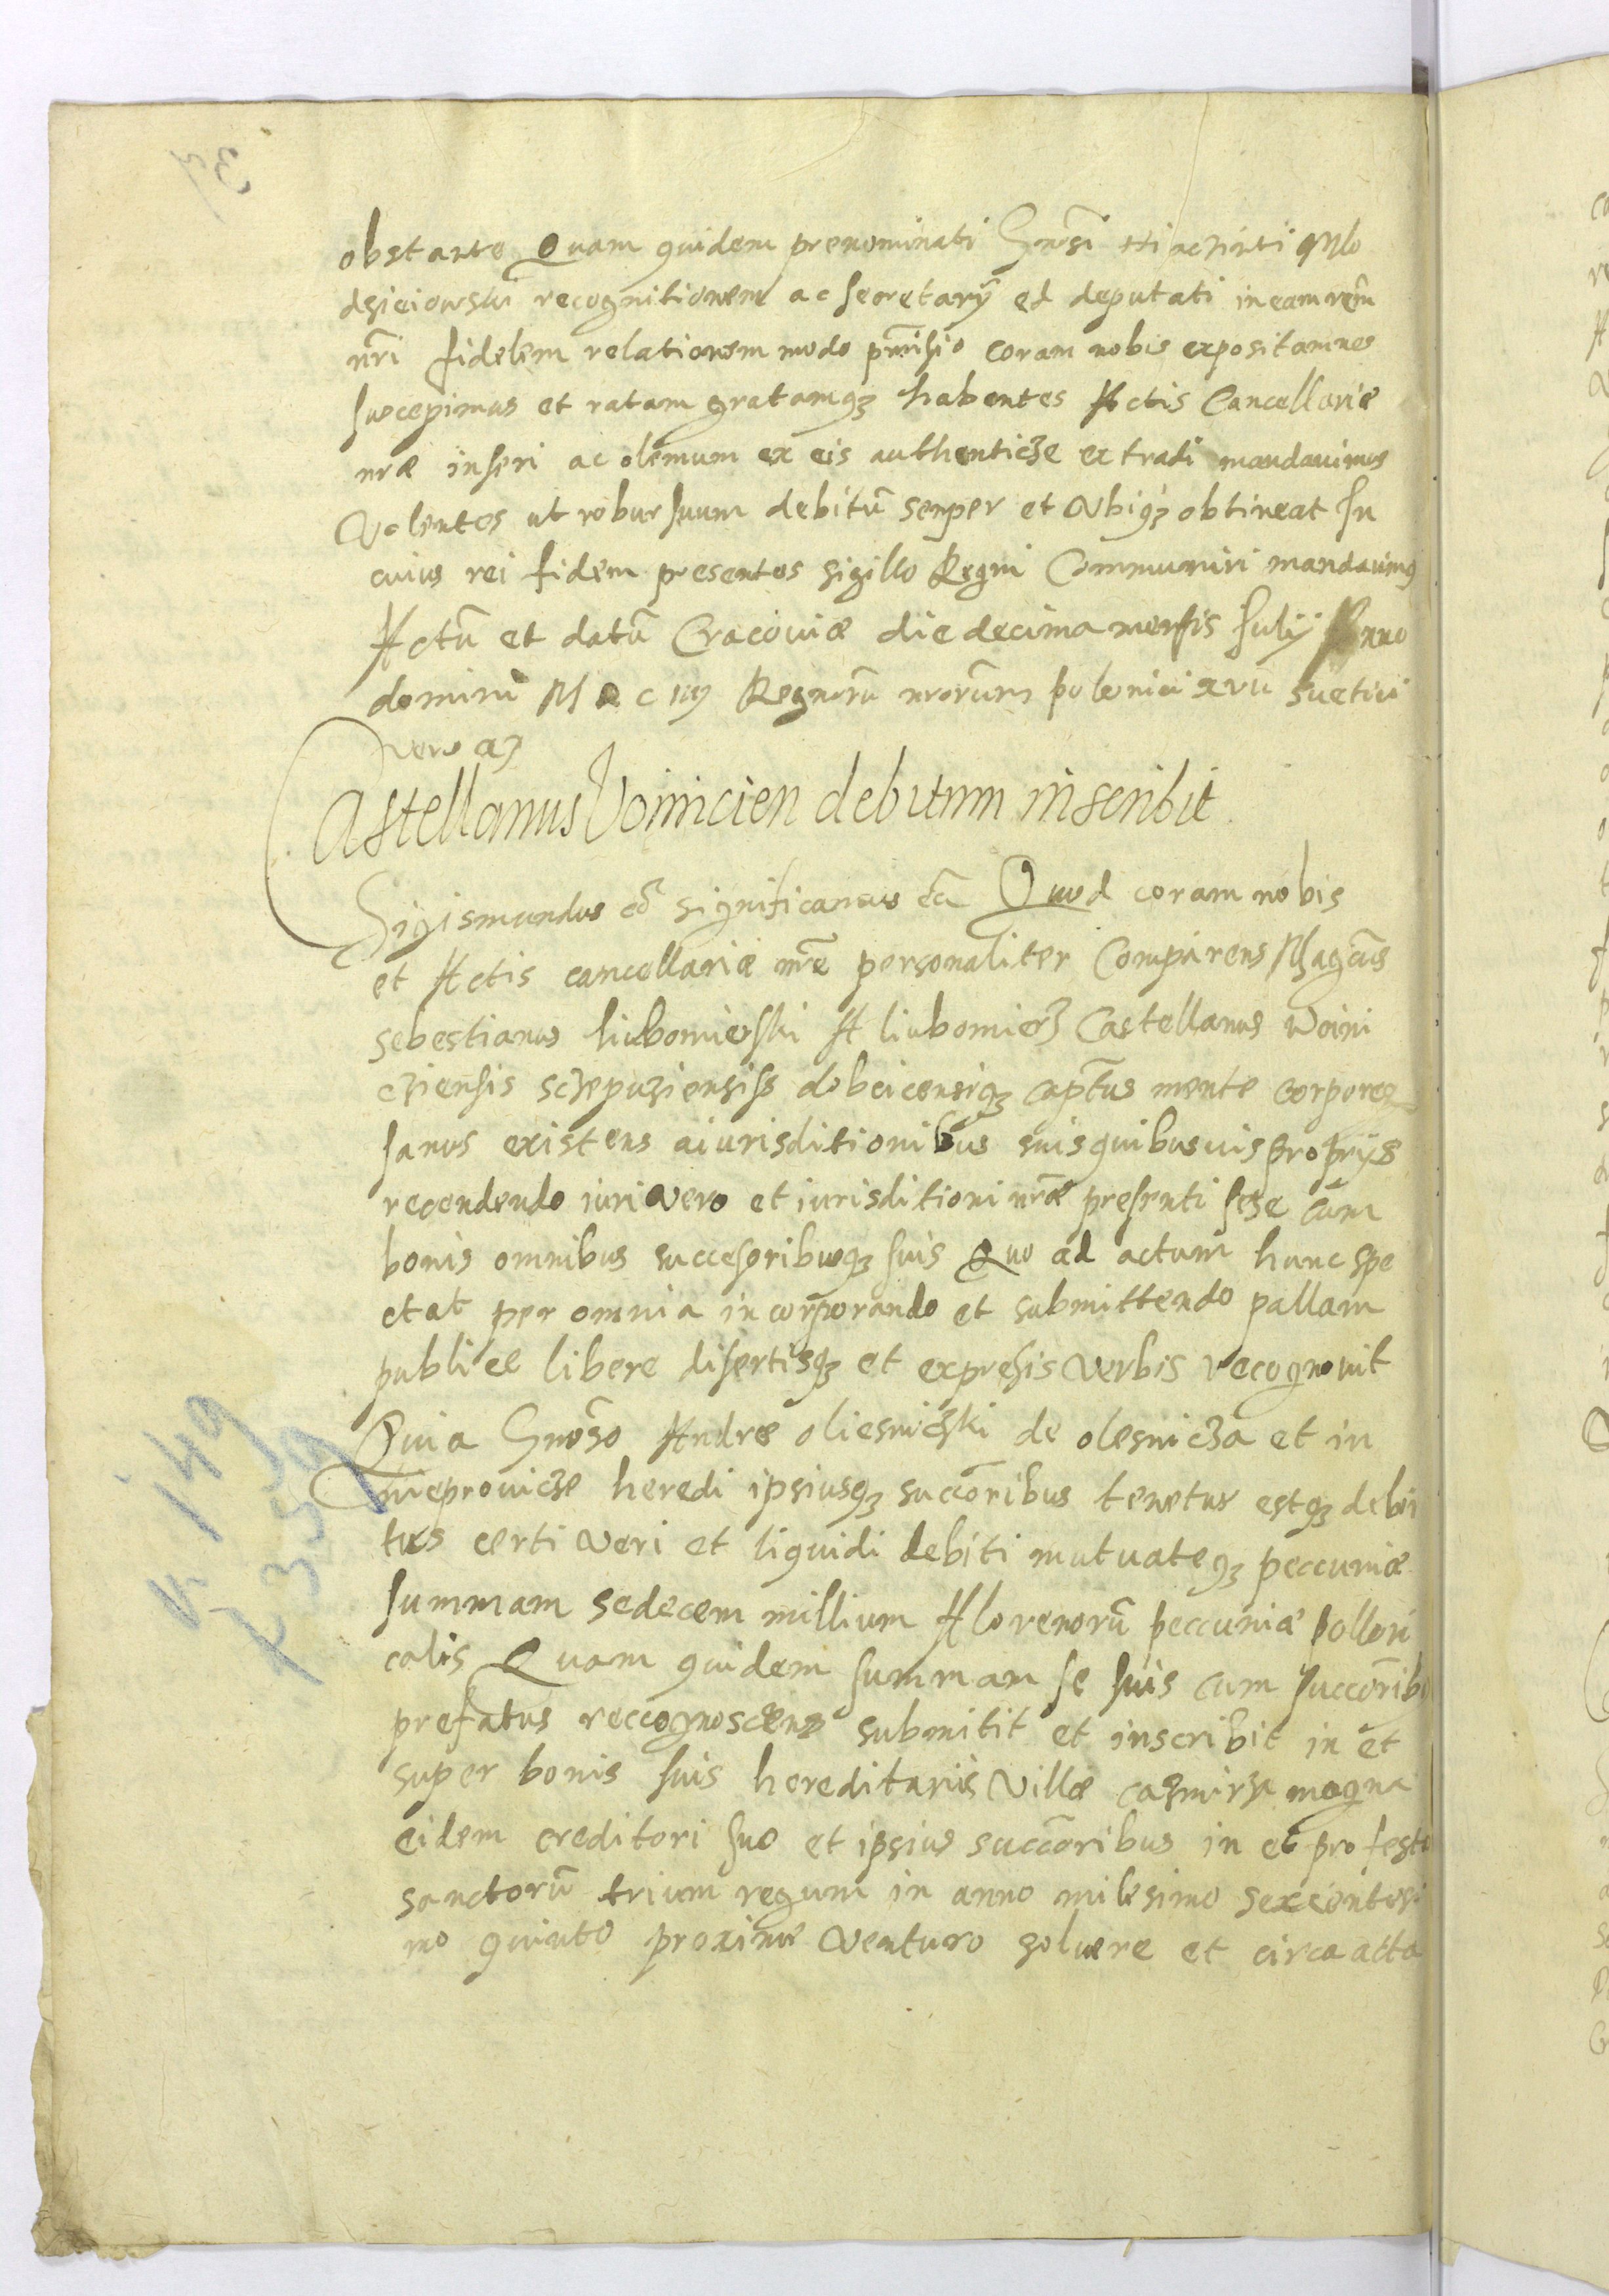 obstante Quam quidem prenominati Gnosi Hiaczinti Mlo
dzieiowski recognitionem ac secretarÿ ed deputati in eam rem
nri fidelem relationem modo pmisio coram nobis expositam nos
suscepimus et ratam gratamqz habentes Actis Cancellariæ
nræ inseri ac demum ex eis authenticze extradi mandauimus
Volentes ut robur suum debitū senper et Vbiqz obtineat In
cuius rei fidem presentes sigillo Regni Communiri mandauimus
Actū et datū Cracouiæ die decima mensis Julij Anno
domini M D C iiij Regnorū nrorum polonici xvii suetici
vero xj
Castellanus Voinicien debitum inscribit
Sigismundus etc significamus etc Quod coram nobis
et Actis cancellariæ nræ personaliter Comparens Magcus
sebestianus liubomierski A liubomierz Castellanus Voini
cziensis sczepuziensiss dobcicensiqz captus mente corporeqz
sanus existens a iurisditionibus suis quibusuis proprijs
recendendo iuri vero et iurisditioni nræ presenti sese cum
bonis omnibus succesoribusqz suis Quo ad actum hunc spe
ctat per omnia incorporando et submittendo pallam
publice libere disertisqz et expresis verbis recognouit
Quia Gnoso Andree oliesniczki de olesnicza et in
nieprouicze heredi ipsiusqz succoribus tenetur estqz debi
tus certi veri et liquidi debiti mutuateqz peccuniæ
summam sedecem millium Florenorū peccuniæ polloni
calis Quam quidem summam se suis cum succoribus
prefatus reccognoscens submitit et inscribit in et
super bonis suis hereditariis Villæ cazmirza magna
eidem creditori suo et ipsius succoribus in et pro festo
sanctorū trium regum in anno milesimo sexcentesi
mo quinto proxime venturo soluere et circa acta